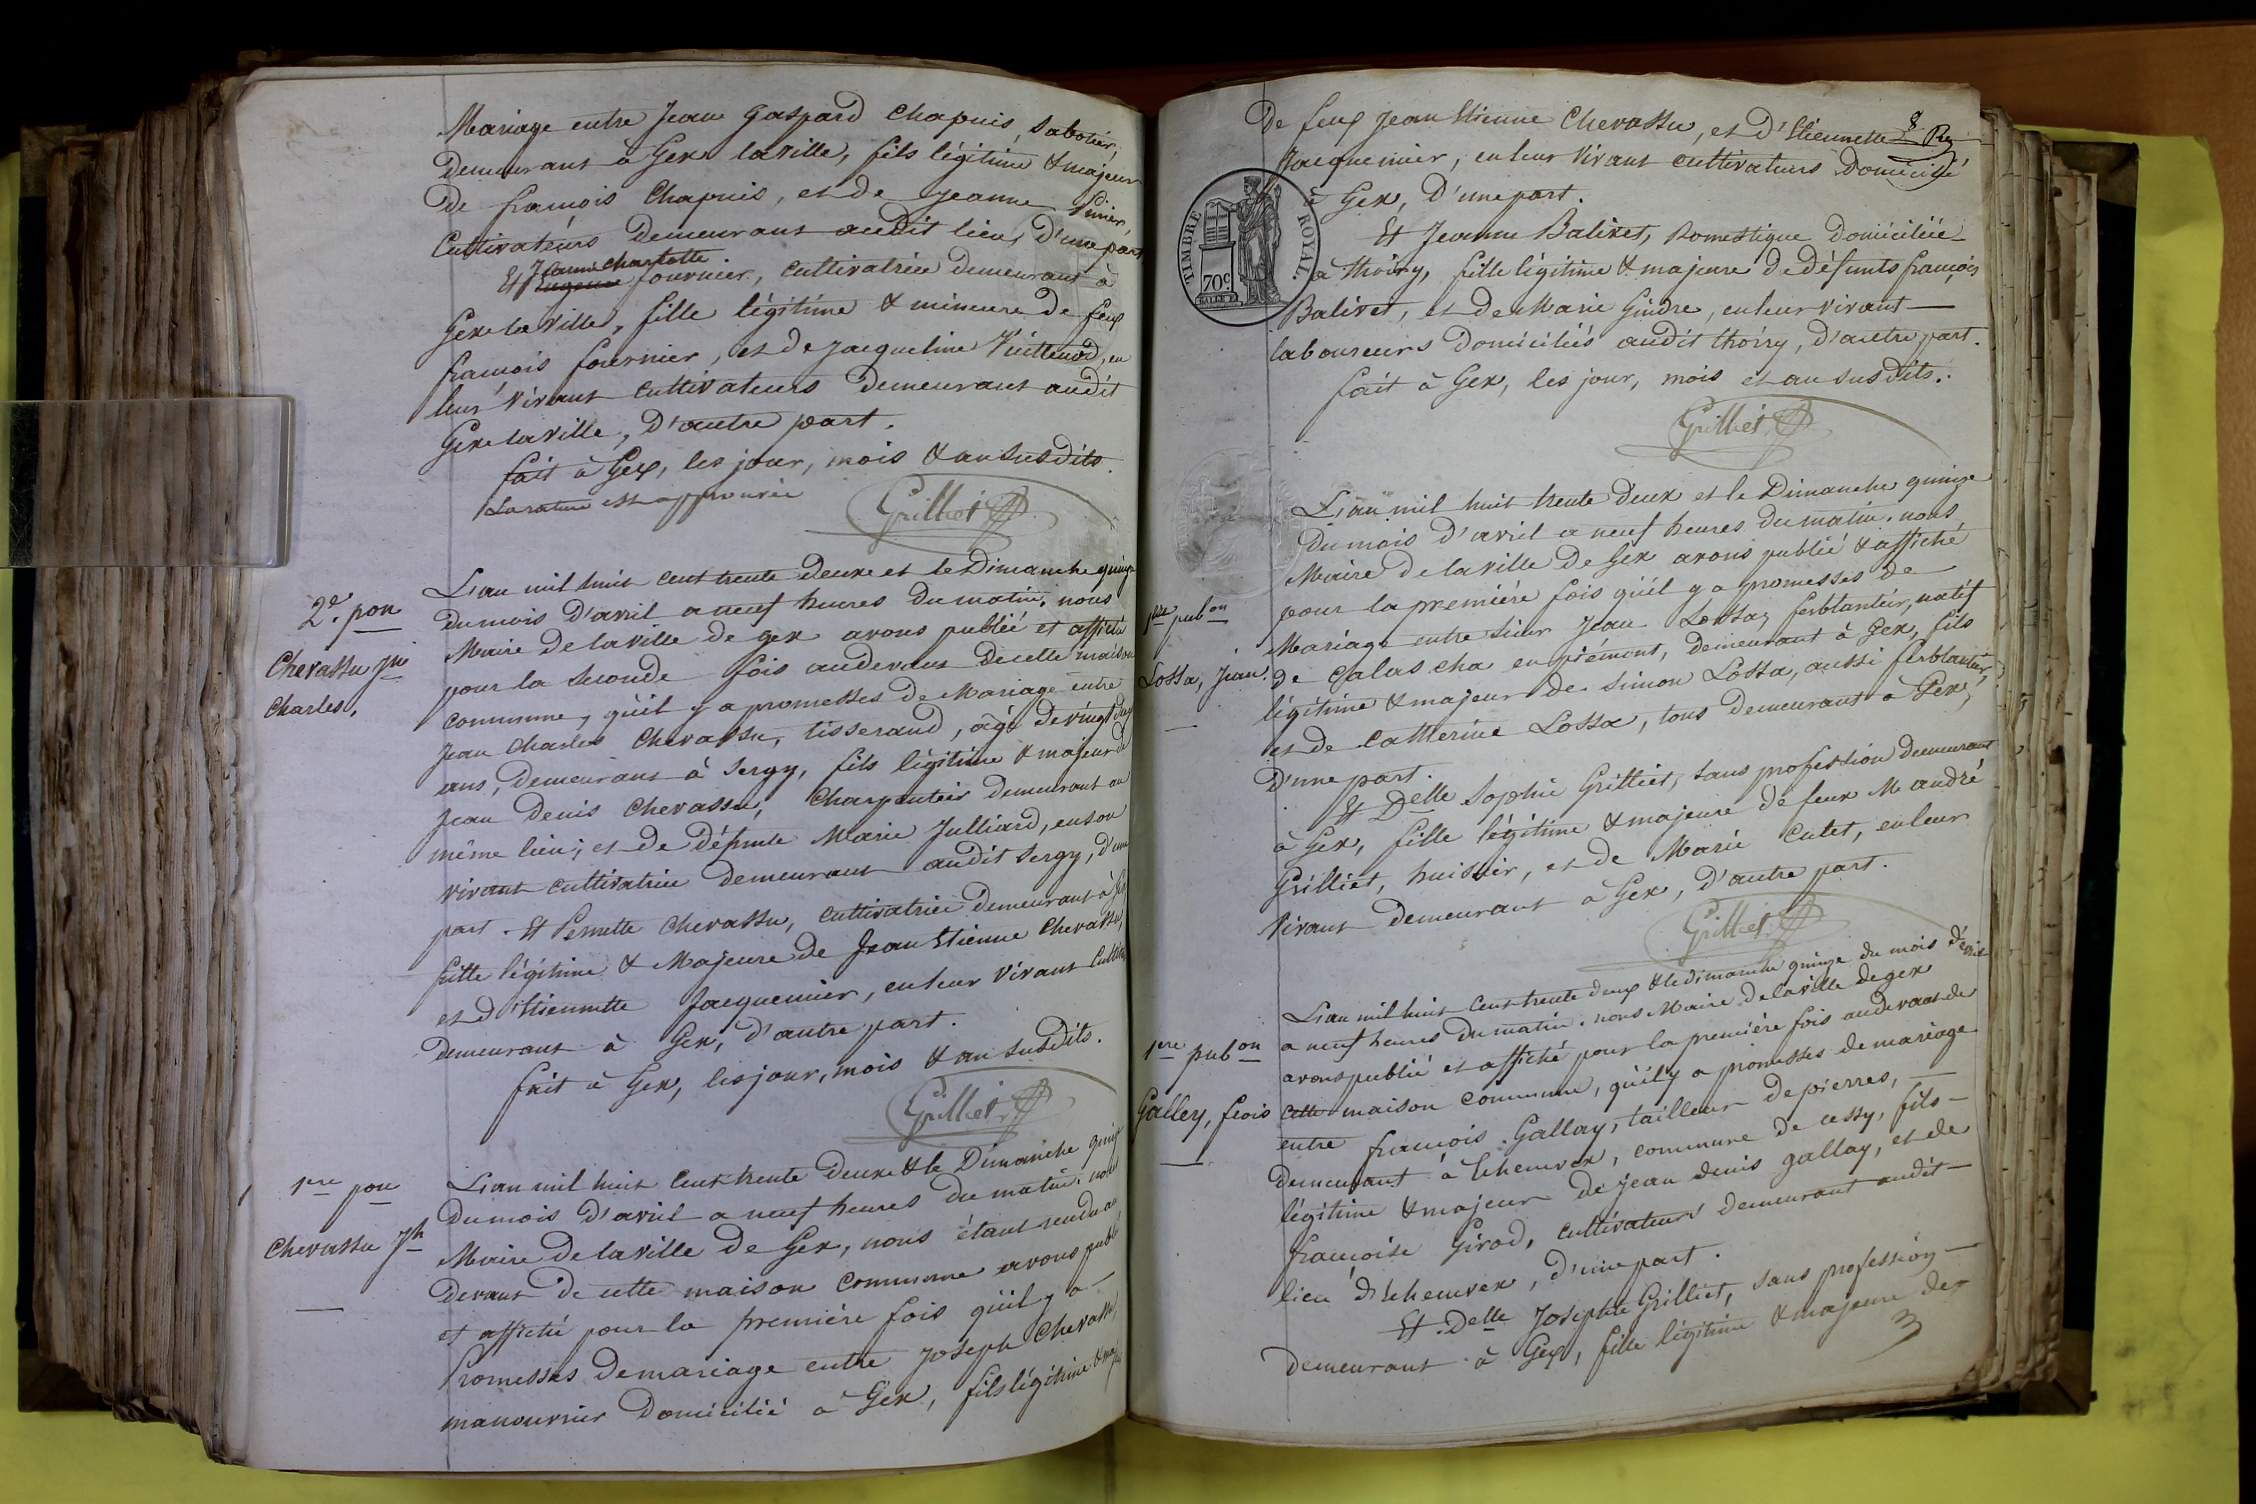 Mariage entre Jean Gaspard Chapuis, Sabotier,
demeurant à Gex laville, fils légitime & majeur
de françois Chapuis, et de Jeanne
Cultivateurs demeurant audit lieu, D'une part
Jeanne charlotte
Et fournier, cultivatrice demeurant à
Gex la ville, fille légitime & mineure de feux
francois fournier, et de Jacqueline Vuillenod, en
leur vivant cultivateurs demeurant audit
Gex laville, D'autre part.
fait à Gex, les jour, mois & an susdits.
La rature est approuvée
Grilliet
2e. pon
Chevassu Jn
Charles,
L'an mil huit cent trente deux et le Dimanche quinze
du mois D'avril a neuf heures du matin, nous
Maire de la ville de gex avons publié et affiché
pour la seconde fois audevant de cette maison
commune, qu'il y a promesses de Mariage entre
Jean Charles Chevassu, tisserand, agé de vingt
ans, demeurant à Sergy, fils légitime & majeur de
Jean Denis Chevassu, Charpentier demeurant au
même lieu; et de défunte Marie Julliard, en son
vivant cultivatrice demeurant audit Sergy, d'une
part. Et Pernette Chevassu, cultivatrice demeurant à Gex
fille légitime & Majeure de Jean Etienne Chevassu,
et d'Etiennette Jacquemier, en leur vivant
demeurant à Gex, d'autre part.
fait à Gex, les jour, mois & an susdits.
Grilliet
1ere pon
Chevassu Jh
L'an mil huit cent trente deux & le Dimanche quinze
du mois D'avril a neuf heures du matin, nous
Maire de la ville de Gex, nous étant rendu au
devant de cette maison commune avons publié
et affiché pour la première fois qu'il y a
Promesses de mariage entre Joseph Chevassu,
manouvrier Domicilié à Gex, fils légitime & majeur
8
de feux Jean Etienne Chevassu, et D'Etiennette
Jacquemier, en leur vivant cultivateurs Domicilié
à Gex, D'une part.
Et Jeanne Balivet, Domestique domiciliée
à thoiry, fille légitime & majeure de défunts françois
Balivet, et de Marie Gindre, en leur vivant
laboureurs domiciliés audit thoiry, d'autre part.
fait à Gex, les jour, mois et an susdits.
Grilliet
TIMBRE ROYAL.
70c
1ere pubon
Lossa, Jean.
L'an mil huit trente deux et le Dimanche quinze
du mois d'avril a neuf heures du matin, nous
Maire de la ville de Gex avons publié & affiché
pour la première fois qu'il y a promesses de
Mariage entre sieur Jean Lossa, ferblantier, natif
de Calascha en piemont, demeurant à Gex, fils
légitime & majeur de Simon Lossa, aussi ferblantier,
et de Catherine Lossa, tous demeurant à Gex,
D'une part.
Et Delle Sophie Grilliet, sans profession demeurant
à Gex, fille légitime & majeure de feux M andré
Grilliet, huissier, et de Marie Cutet, en leur
vivant demeurant à Gex, D'autre part.
Grilliet
1ere pubon
Galley, frois
L'an mil huit cent trente deux & le dimanche quinze du mois d'avril
a neuf heures du matin, nous Maire de la ville de gex
avons publié et affiché pour la première fois audevant de
cette maison commune, qu'il y a promesses de mariage
entre francois Gallay, tailleur de pierres,
demeurant à Echenvex, commune de cessy, fils
légitime & majeur de jean denis gallay, et de
françoise Girod, cultivateurs demeurant audit
lieu d'Echenvex, d'une part.
Et Delle Josephte Grilliet, sans profession
demeurant à Gex, fille légitime & majeure de